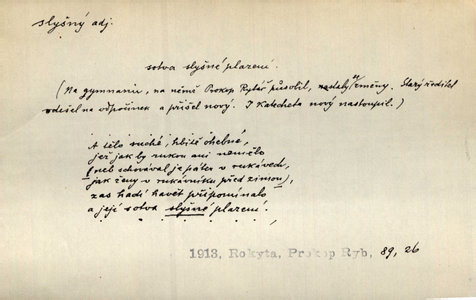 slyšný adj.
sotva slyšné plazení.
(Na gymnasiu, na němž Prokop Rybář působil, nastaly změny. Starý ředitel
odešel na odpočinek a přišel nový. I katecheta nový nastoupil.)
A tělo suché, hbitě ohebné,
jež jak by rukou ani nemělo
(neb schovával je páter v rukávech,
jak ženy v rukávníku před zimou),
zas hadí havěť připomínalo
a její sotva slyšné plazení.
1913, Rokyta, Prokop Ryb, 89, 26